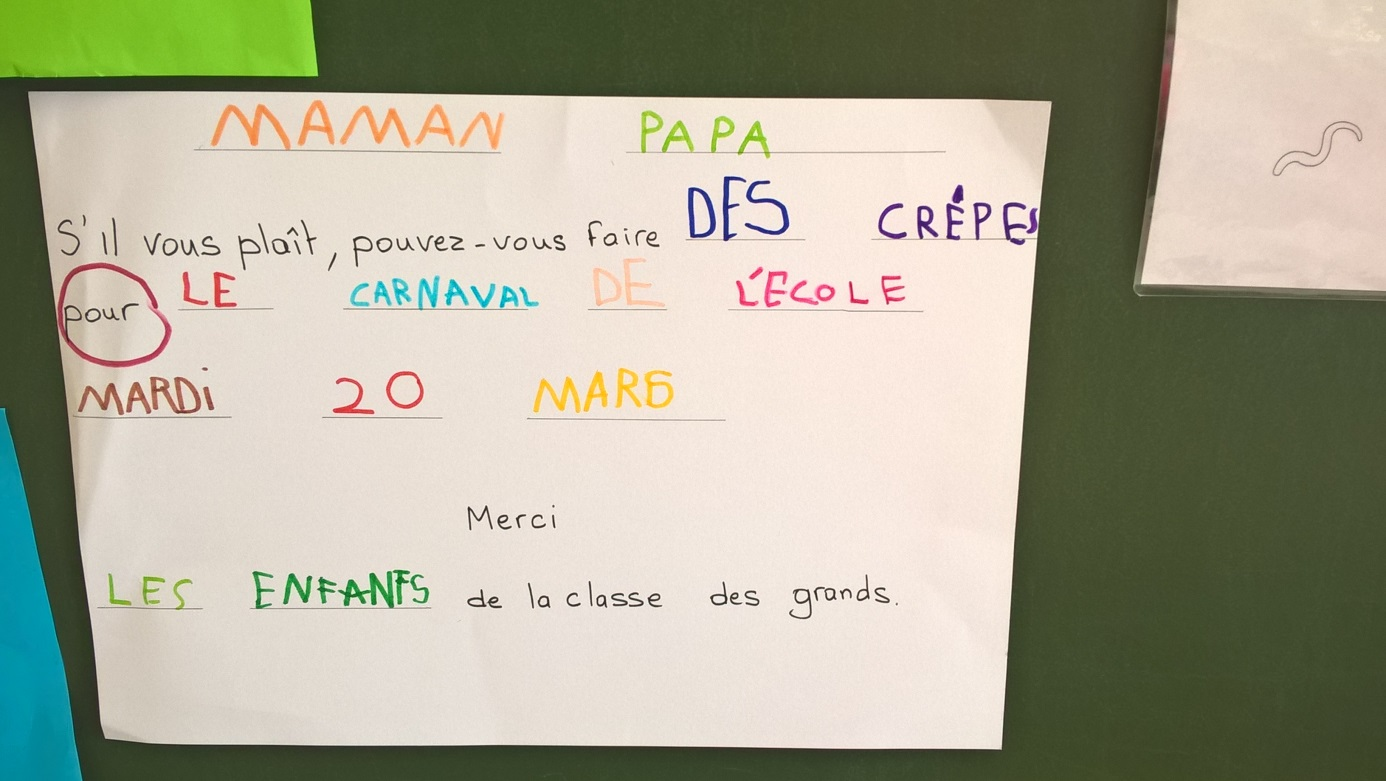 MAMAN PAPA
S'il vous plaît, pouvez-vous faire DES CRÊPES
pour LE CARNAVAL DE L'ÉCOLE
MARDi 20 MARS
Merci
LES ENFANTS de la classe des grands.